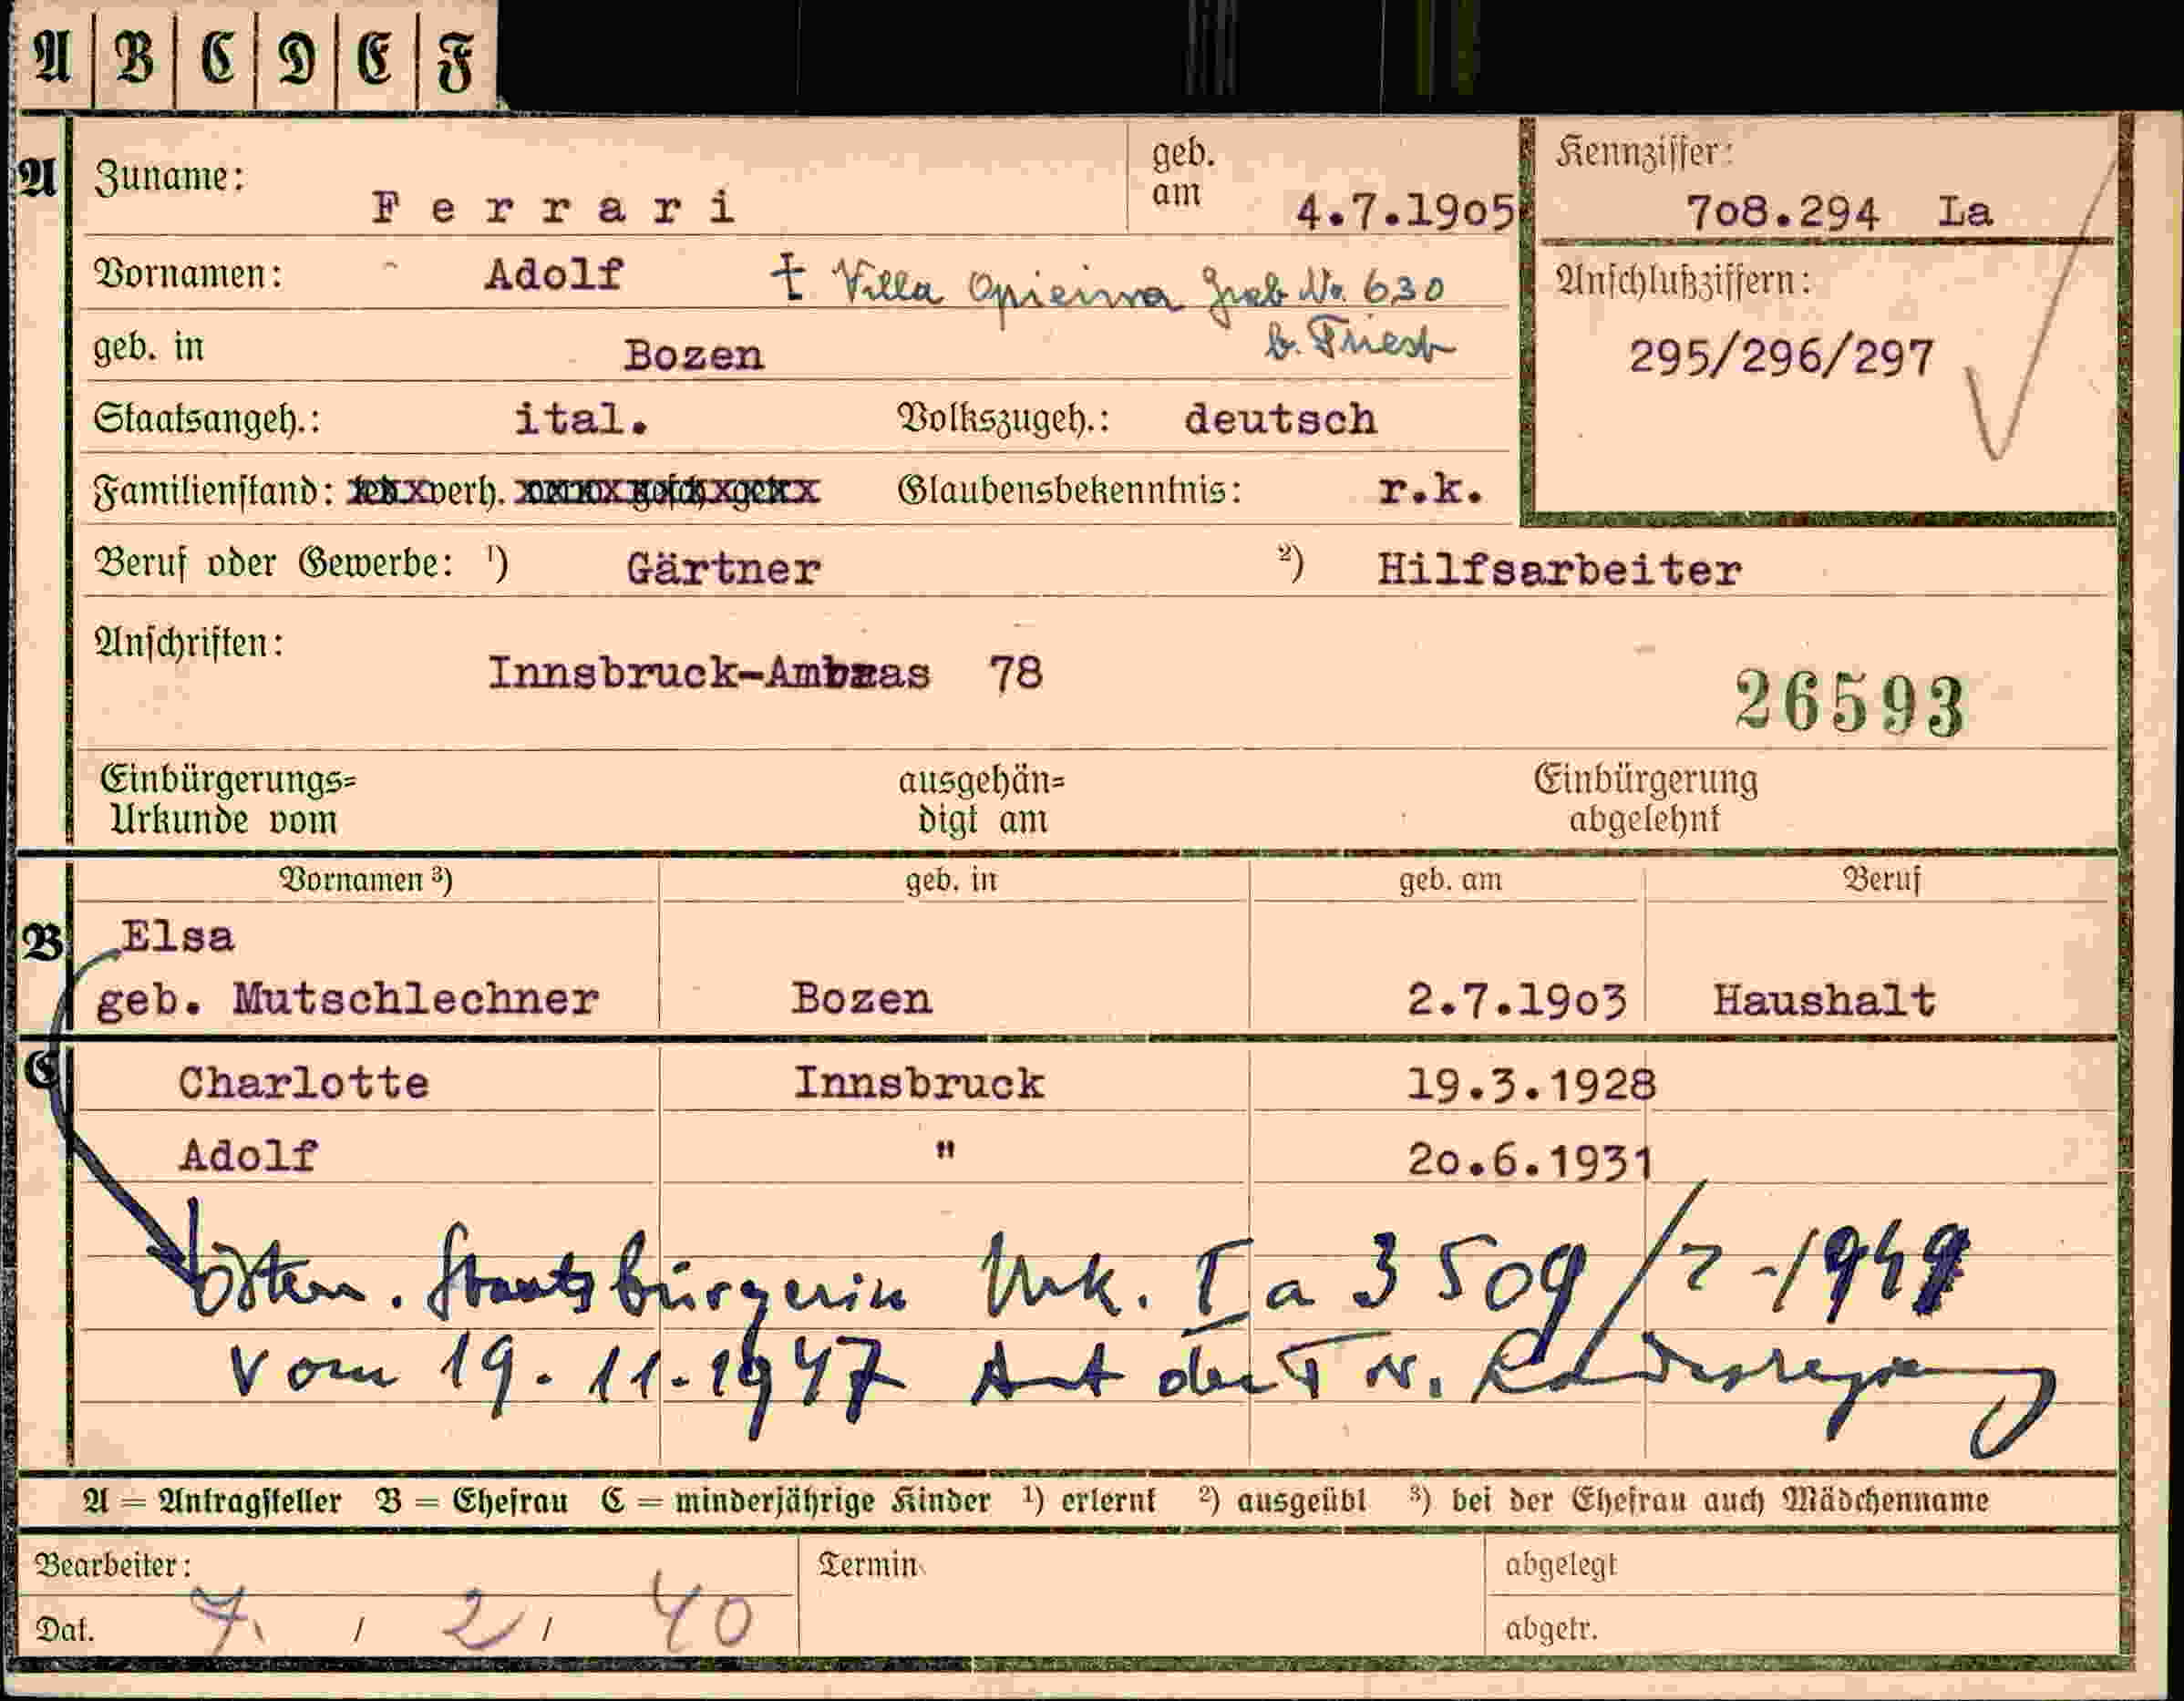 A B C D E F
A Zuname: Ferrari geb. am 4.7.19o5 Kennziffer: 7o8.294 La
Vornamen: Adolf † Villa Opicina Grab No. 630
b. Triest
Anschlußziffern:
295/296/297
geb. in Bozen
Staatsangeh.: ital. Volkszugeh.: deutsch
Familienstand: verh. Glaubensbekenntnis: r.k.
Beruf oder Gewerbe: 1) Gärtner 2) Hilfsarbeiter
Anschriften:
Innsbruck-Ambras 78
26593
Einbürgerungs=
Urkunde vom
ausgehän=
digt am
Einbürgerung
abgelehnt
Vornamen 3) geb. in geb. am Beruf
B Elsa
geb. Mutschlechner Bozen 2.7.19o3 Haushalt
C Charlotte Innsbruck 19.3.1928
Adolf " 2o.6.1931
österr. Staatsbürgerin Urk. Ia 3509/ -194
vom 19.11.1947 Amt der Landesregierung
A = Antragsteller B = Ehefrau C = minderjährige Kinder 1) erlernt 2) ausgeübt 3) bei der Ehefrau auch Mädchenname
Bearbeiter: Termin abgelegt
Dat. 7. / 2 / 40 abgetr.